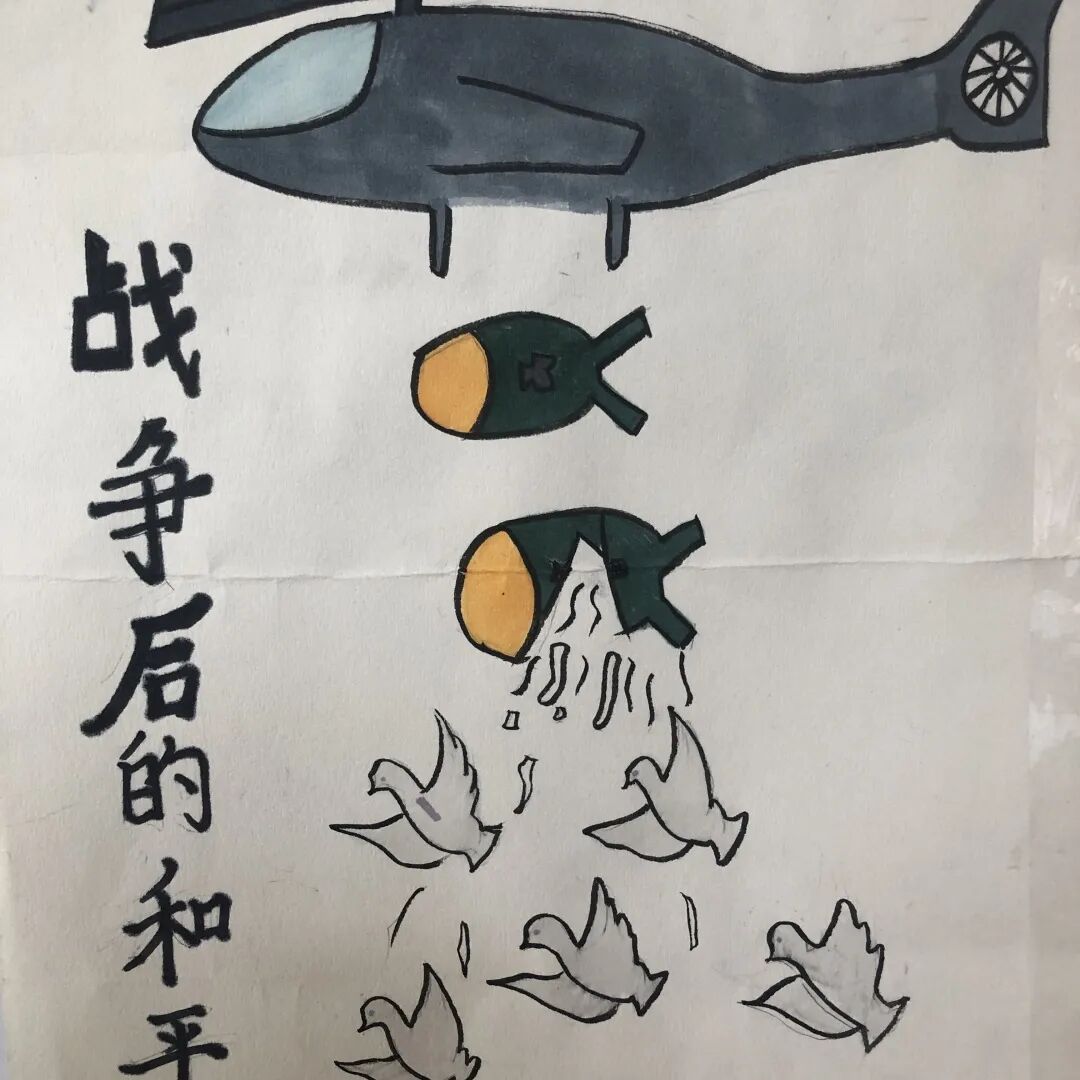 战争后的和平